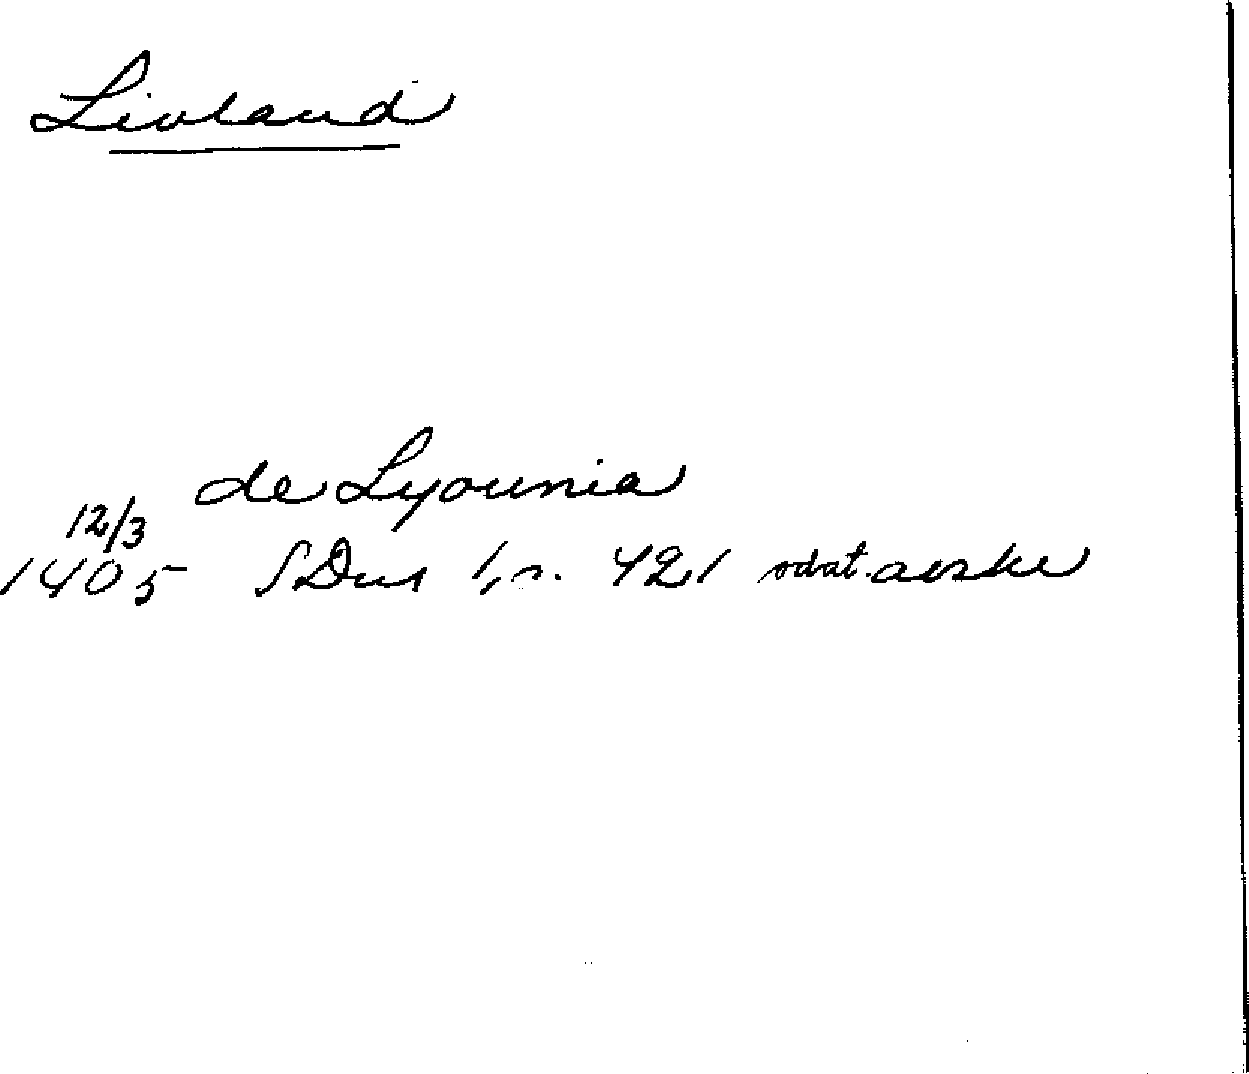 Livland
de Lyounia
12/3
1405 SDns 1, s. 421 odat. avskr